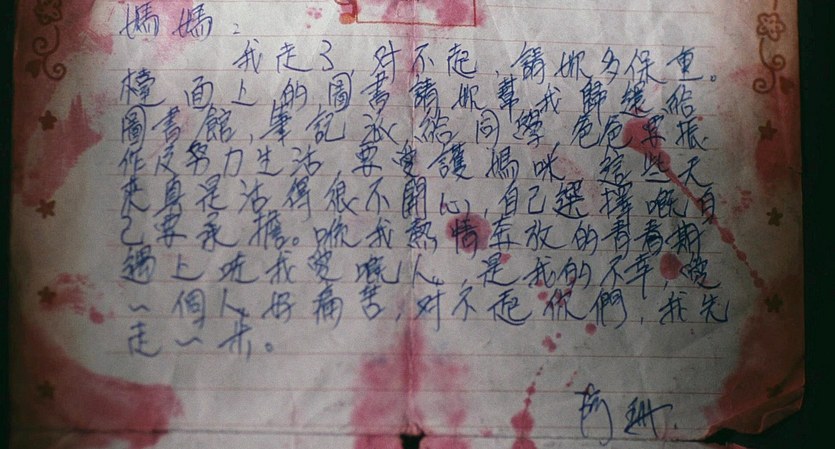 媽媽：
我走了，对不起，請妳多保重。
檯面上的圖書請妳幫我歸還給
圖書館，筆記派給同學，爸爸要振
作及努力生活，要愛護媽咪，這些天
來真是活得很不開心，自己選擇嘅自
己要承擔。喺我熱情奔放的青春期
遇上咗我愛嘅人，是我的不幸，愛
一個人好痛苦，对不起你們，我先
走一步。
阿珊